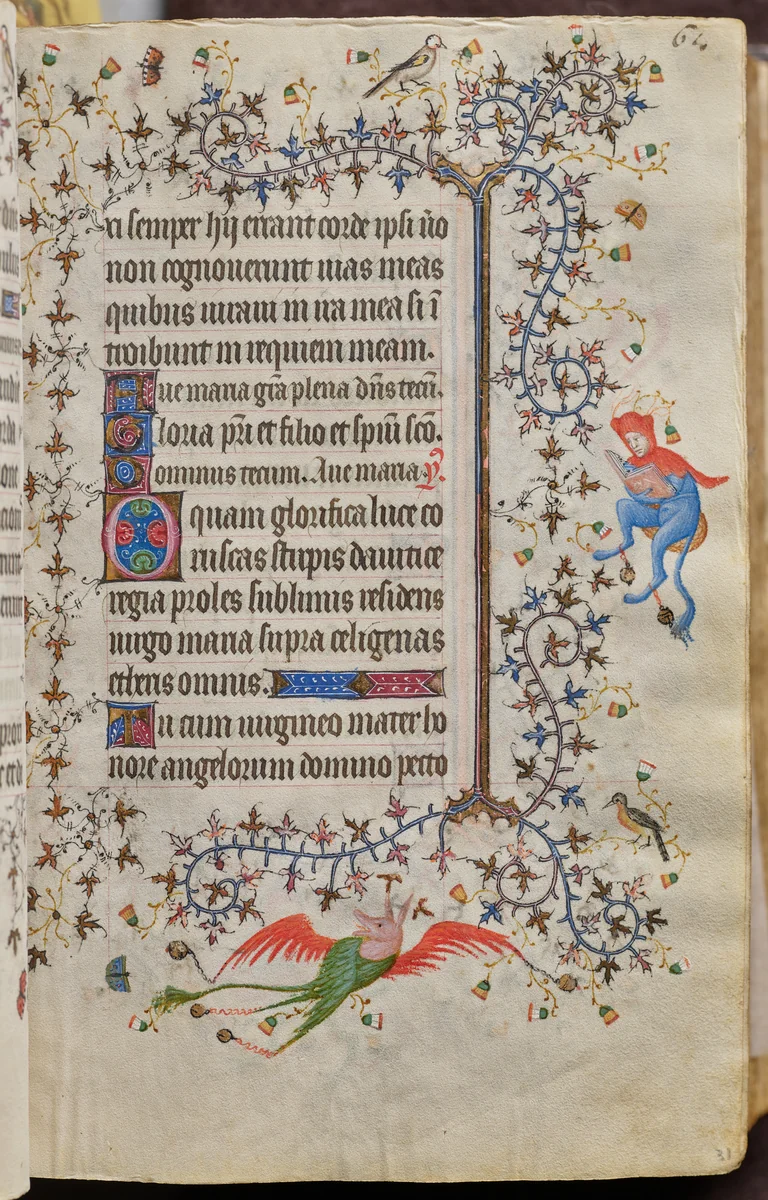 64
ri semper hij errant corde ipsi ũo
non cognouerunt uias meas
quibus iuraui in ira mea si ĩ
troibunt in requiem meam.
Aue maria grã plena dñs tecũ.
Gloria pr̃i et filio et spiũ scõ.
Dominus tecum. Aue maria. ỹ.
O quam glorifica luce co
ruscas stirpis dauitice
regia proles sublimis residens
uirgo maria supra celigenas
etheris omnis.
Tu cum uirgineo mater ho
nore angelorum domino pecto
31